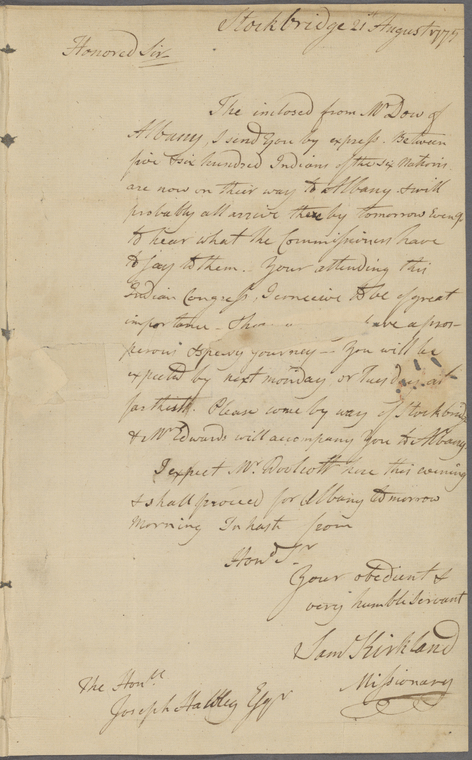 Stockbridge 21st August 1775
Honored Sir
The inclosed from Mr. Dow of
Albany, I send you by express. Between
five & six hundred Indians of the six Nations
are now on their way to Albany & will
probably all arrive there by tomorrow Eveng
to hear what the Commissioners have
to say to them. Your attending this
Indian Congress, I conceive to be of great
importance. have a pros-
perous & speedy journey— You will be
expected by next monday or Tuesday at
farthest. Please come by way of Stockbridge
& Mr Edwards will accompany You to Albany.
I expect Mr. Woolcott here this evening
& shall proceed for Albany tomorrow
morning In hast from
Hond Sr
Your obedient &
very humble servant
Saml Kirkland
Missionary
The Honle
Joseph Hawley Esqr